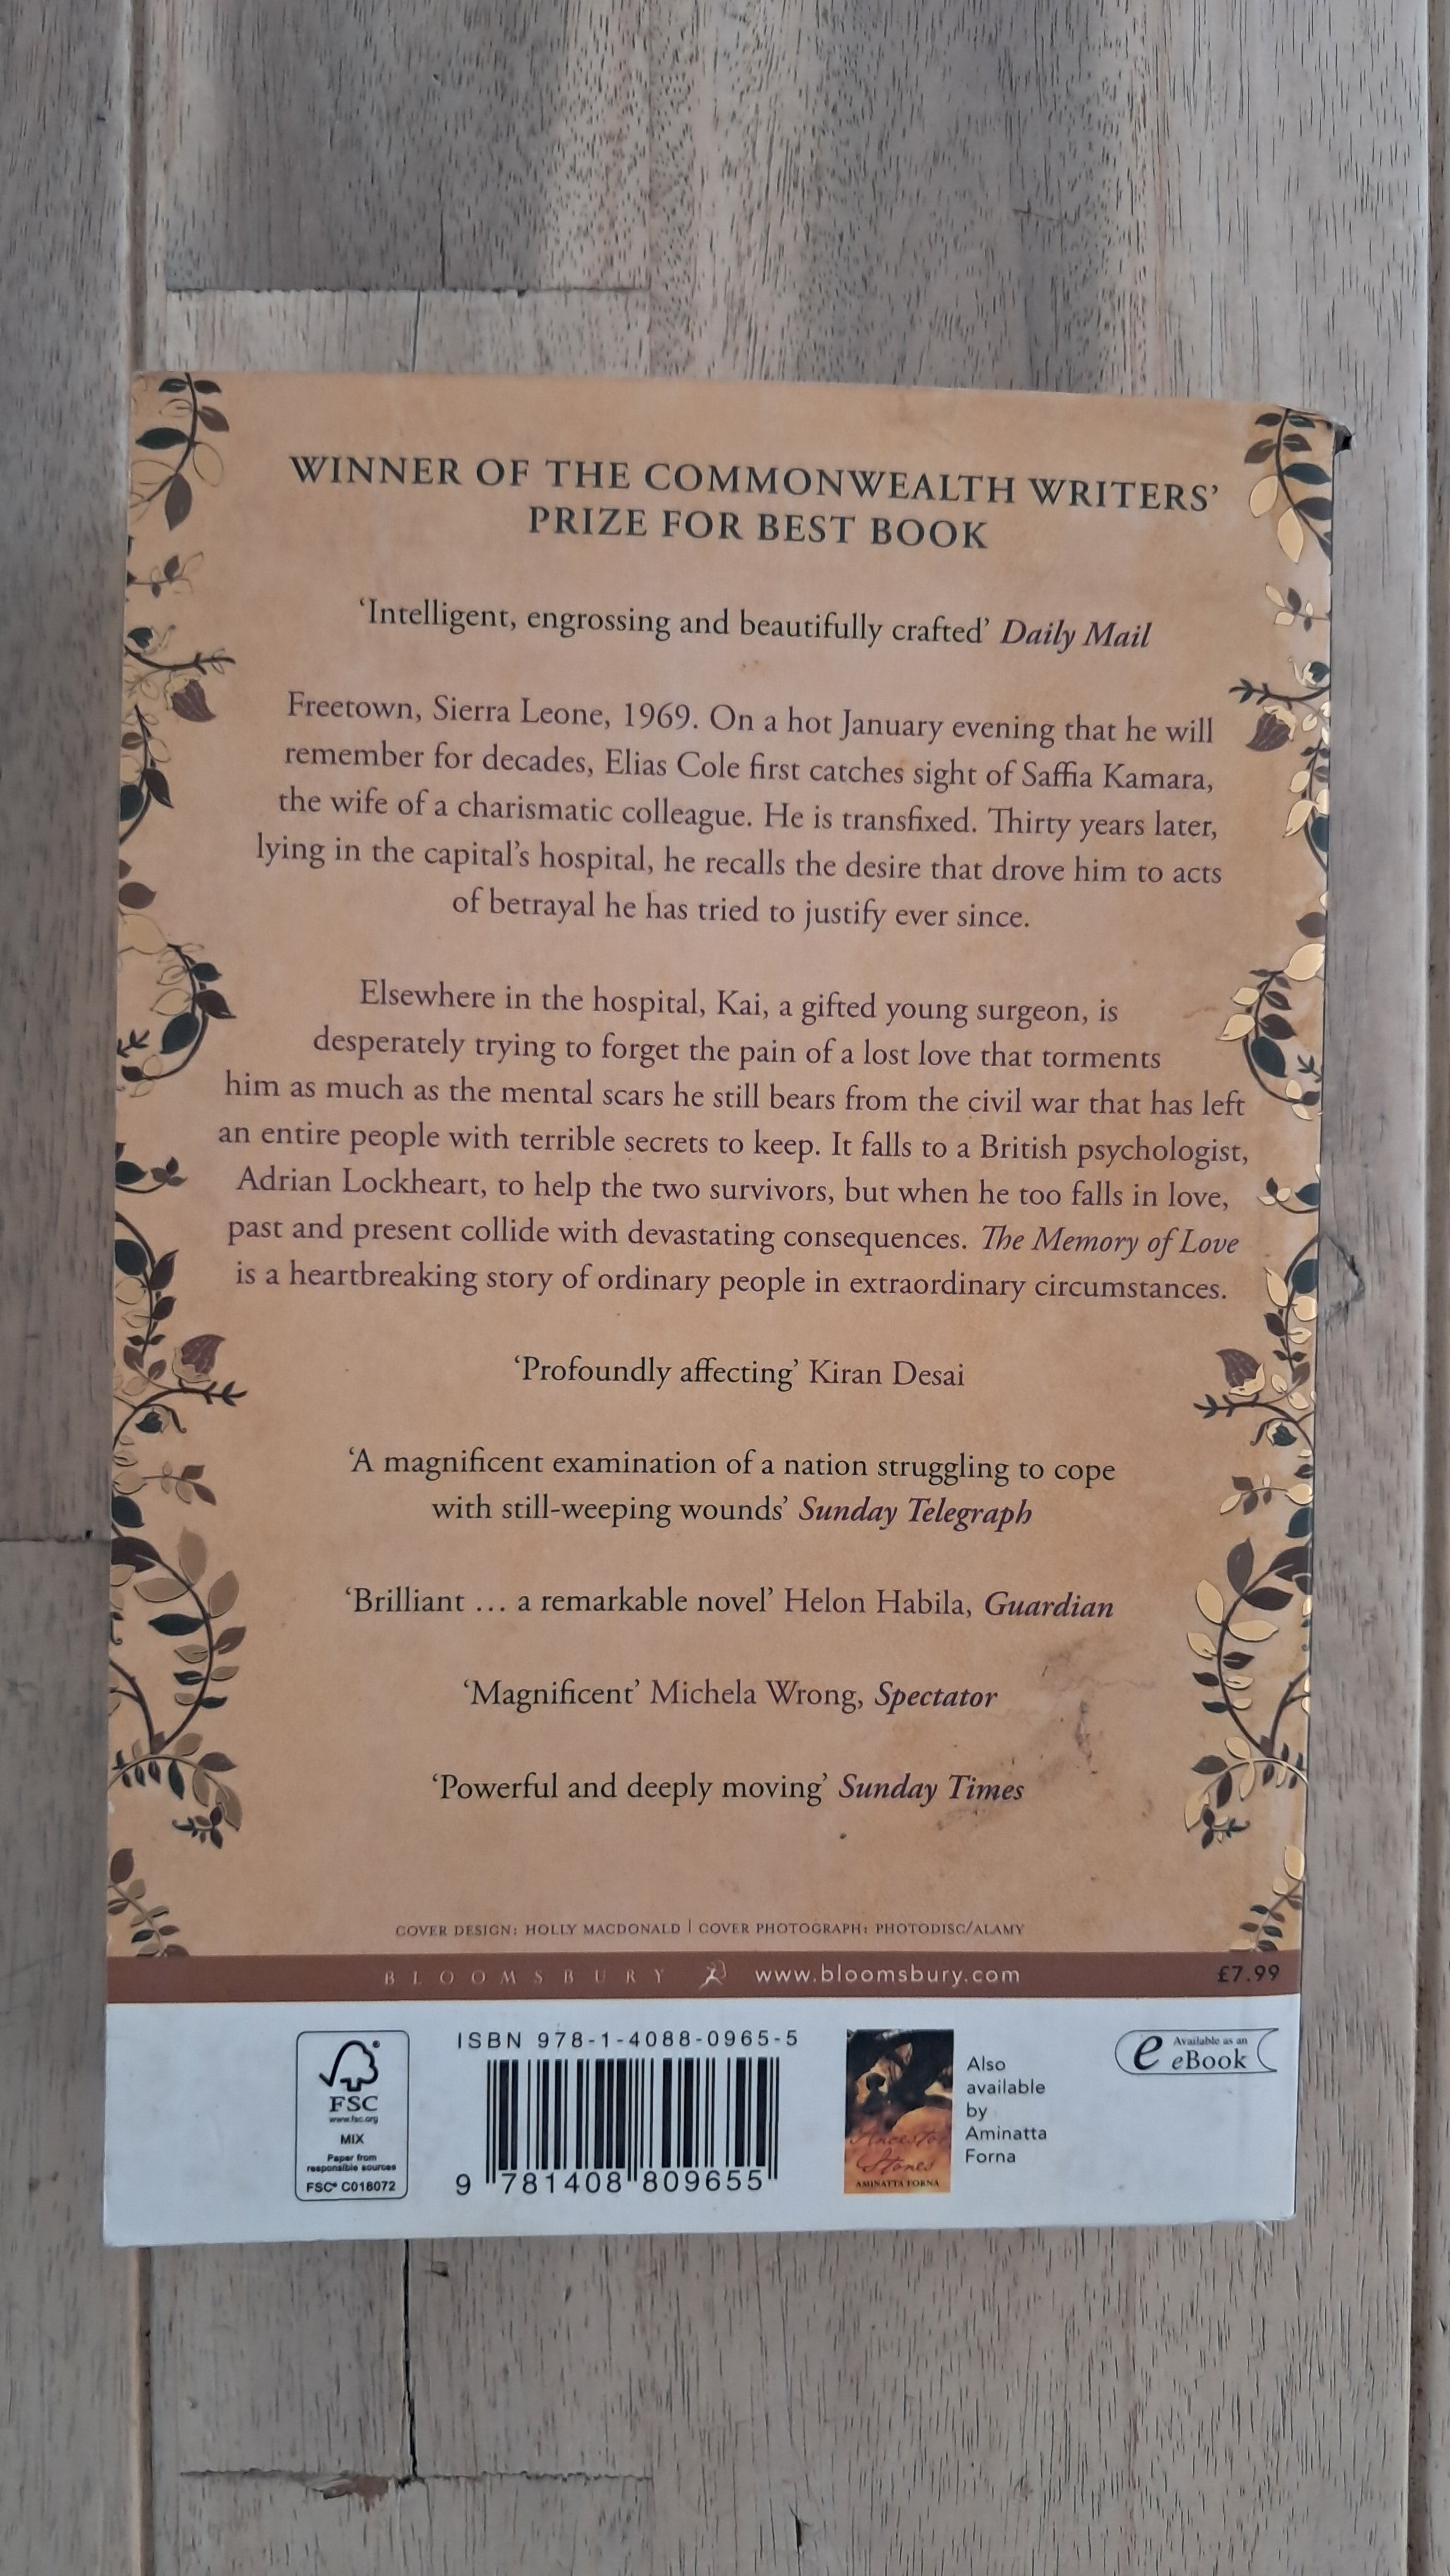 WINNER OF THE COMMONWEALTH WRITERS’
PRIZE FOR BEST BOOK
‘Intelligent, engrossing and beautifully crafted’ Daily Mail
Freetown, Sierra Leone, 1969. On a hot January evening that he will
remember for decades, Elias Cole first catches sight of Saffia Kamara,
the wife of a charismatic colleague. He is transfixed. Thirty years later,
lying in the capital’s hospital, he recalls the desire that drove him to acts
of betrayal he has tried to justify ever since.
Elsewhere in the hospital, Kai, a gifted young surgeon, is
desperately trying to forget the pain of a lost love that torments
him as much as the mental scars he still bears from the civil war that has left
an entire people with terrible secrets to keep. It falls to a British psychologist,
Adrian Lockheart, to help the two survivors, but when he too falls in love,
past and present collide with devastating consequences. The Memory of Love
is a heartbreaking story of ordinary people in extraordinary circumstances.
‘Profoundly affecting’ Kiran Desai
‘A magnificent examination of a nation struggling to cope
with still-weeping wounds’ Sunday Telegraph
‘Brilliant … a remarkable novel’ Helon Habila, Guardian
‘Magnificent’ Michela Wrong, Spectator
‘Powerful and deeply moving’ Sunday Times
COVER DESIGN: HOLLY MACDONALD | COVER PHOTOGRAPH: PHOTODISC/ALAMY
BLOOMSBURY www.bloomsbury.com £7.99
FSC
www.fsc.org
MIX
Paper from
responsible sources
FSC® C018072
ISBN 978-1-4088-0965-5
9 781408 809655
Ancestor
Stones
AMINATTA FORNA
Also
available
by
Aminatta
Forna
e Available as an
eBook